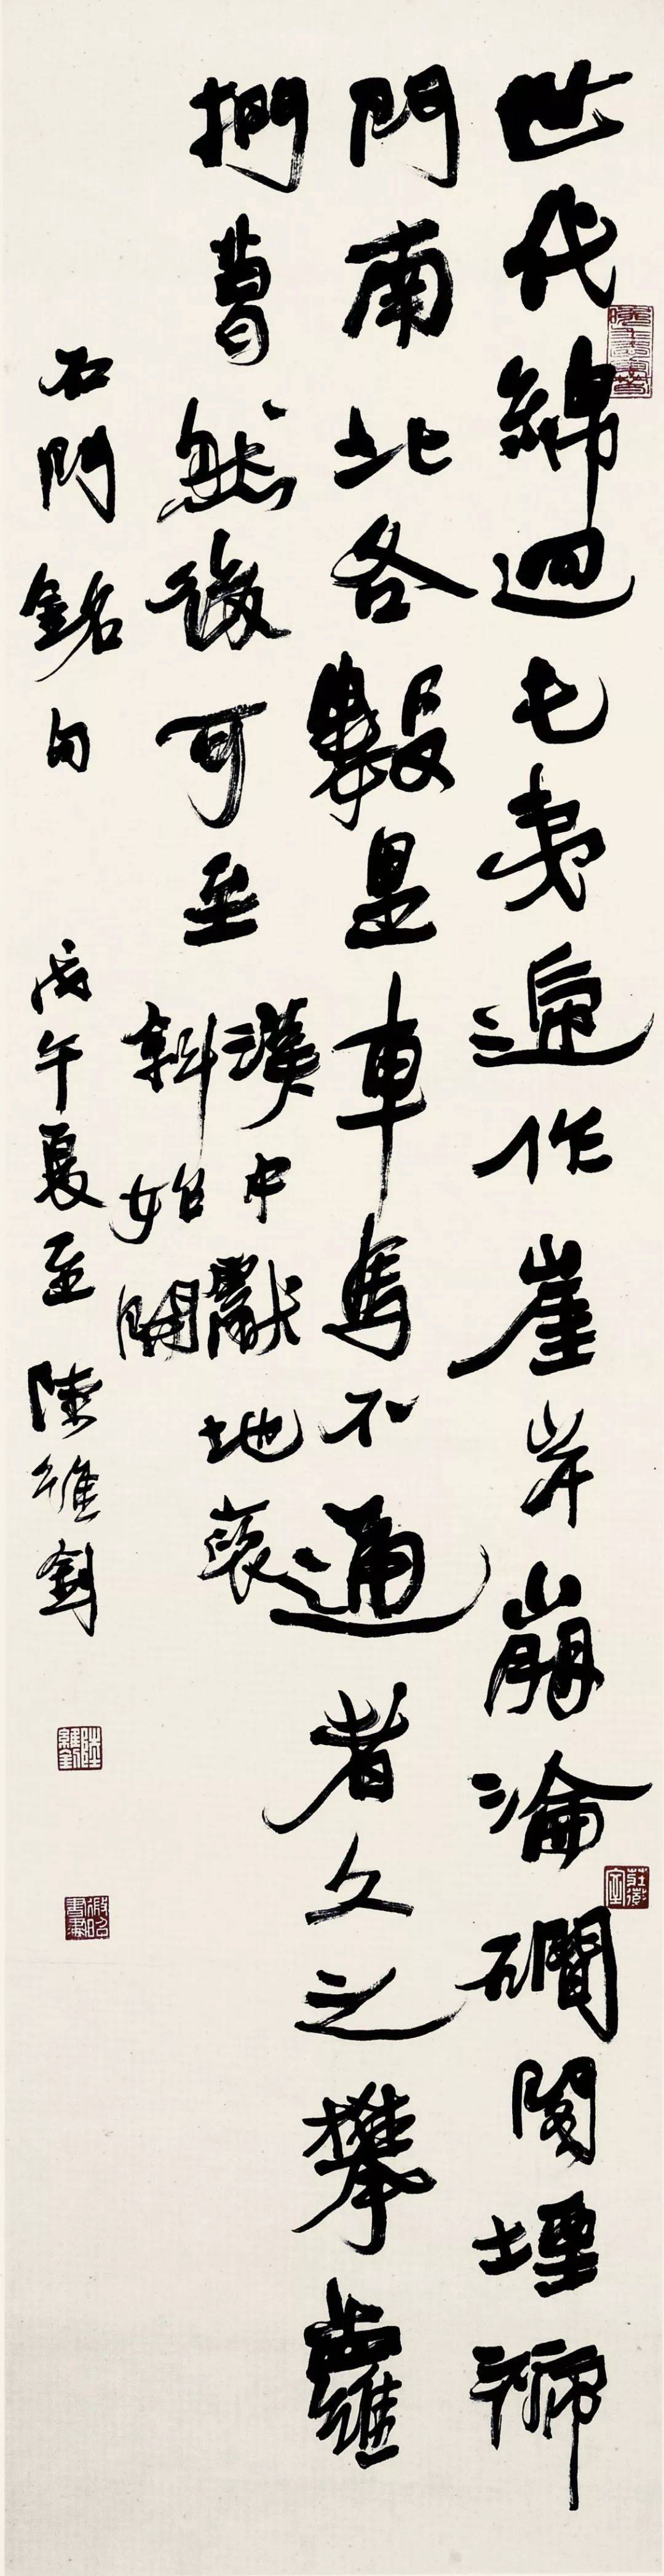 世代綿迴屯夷遞作崖岸崩淪磵閣堙褫
門南北各數里車馬不通者久之攀蘿
捫葛然後可至
漢中獻地褒
斜始開
石門銘句 戊午夏至 陸維釗
陸維釗
莊徽室